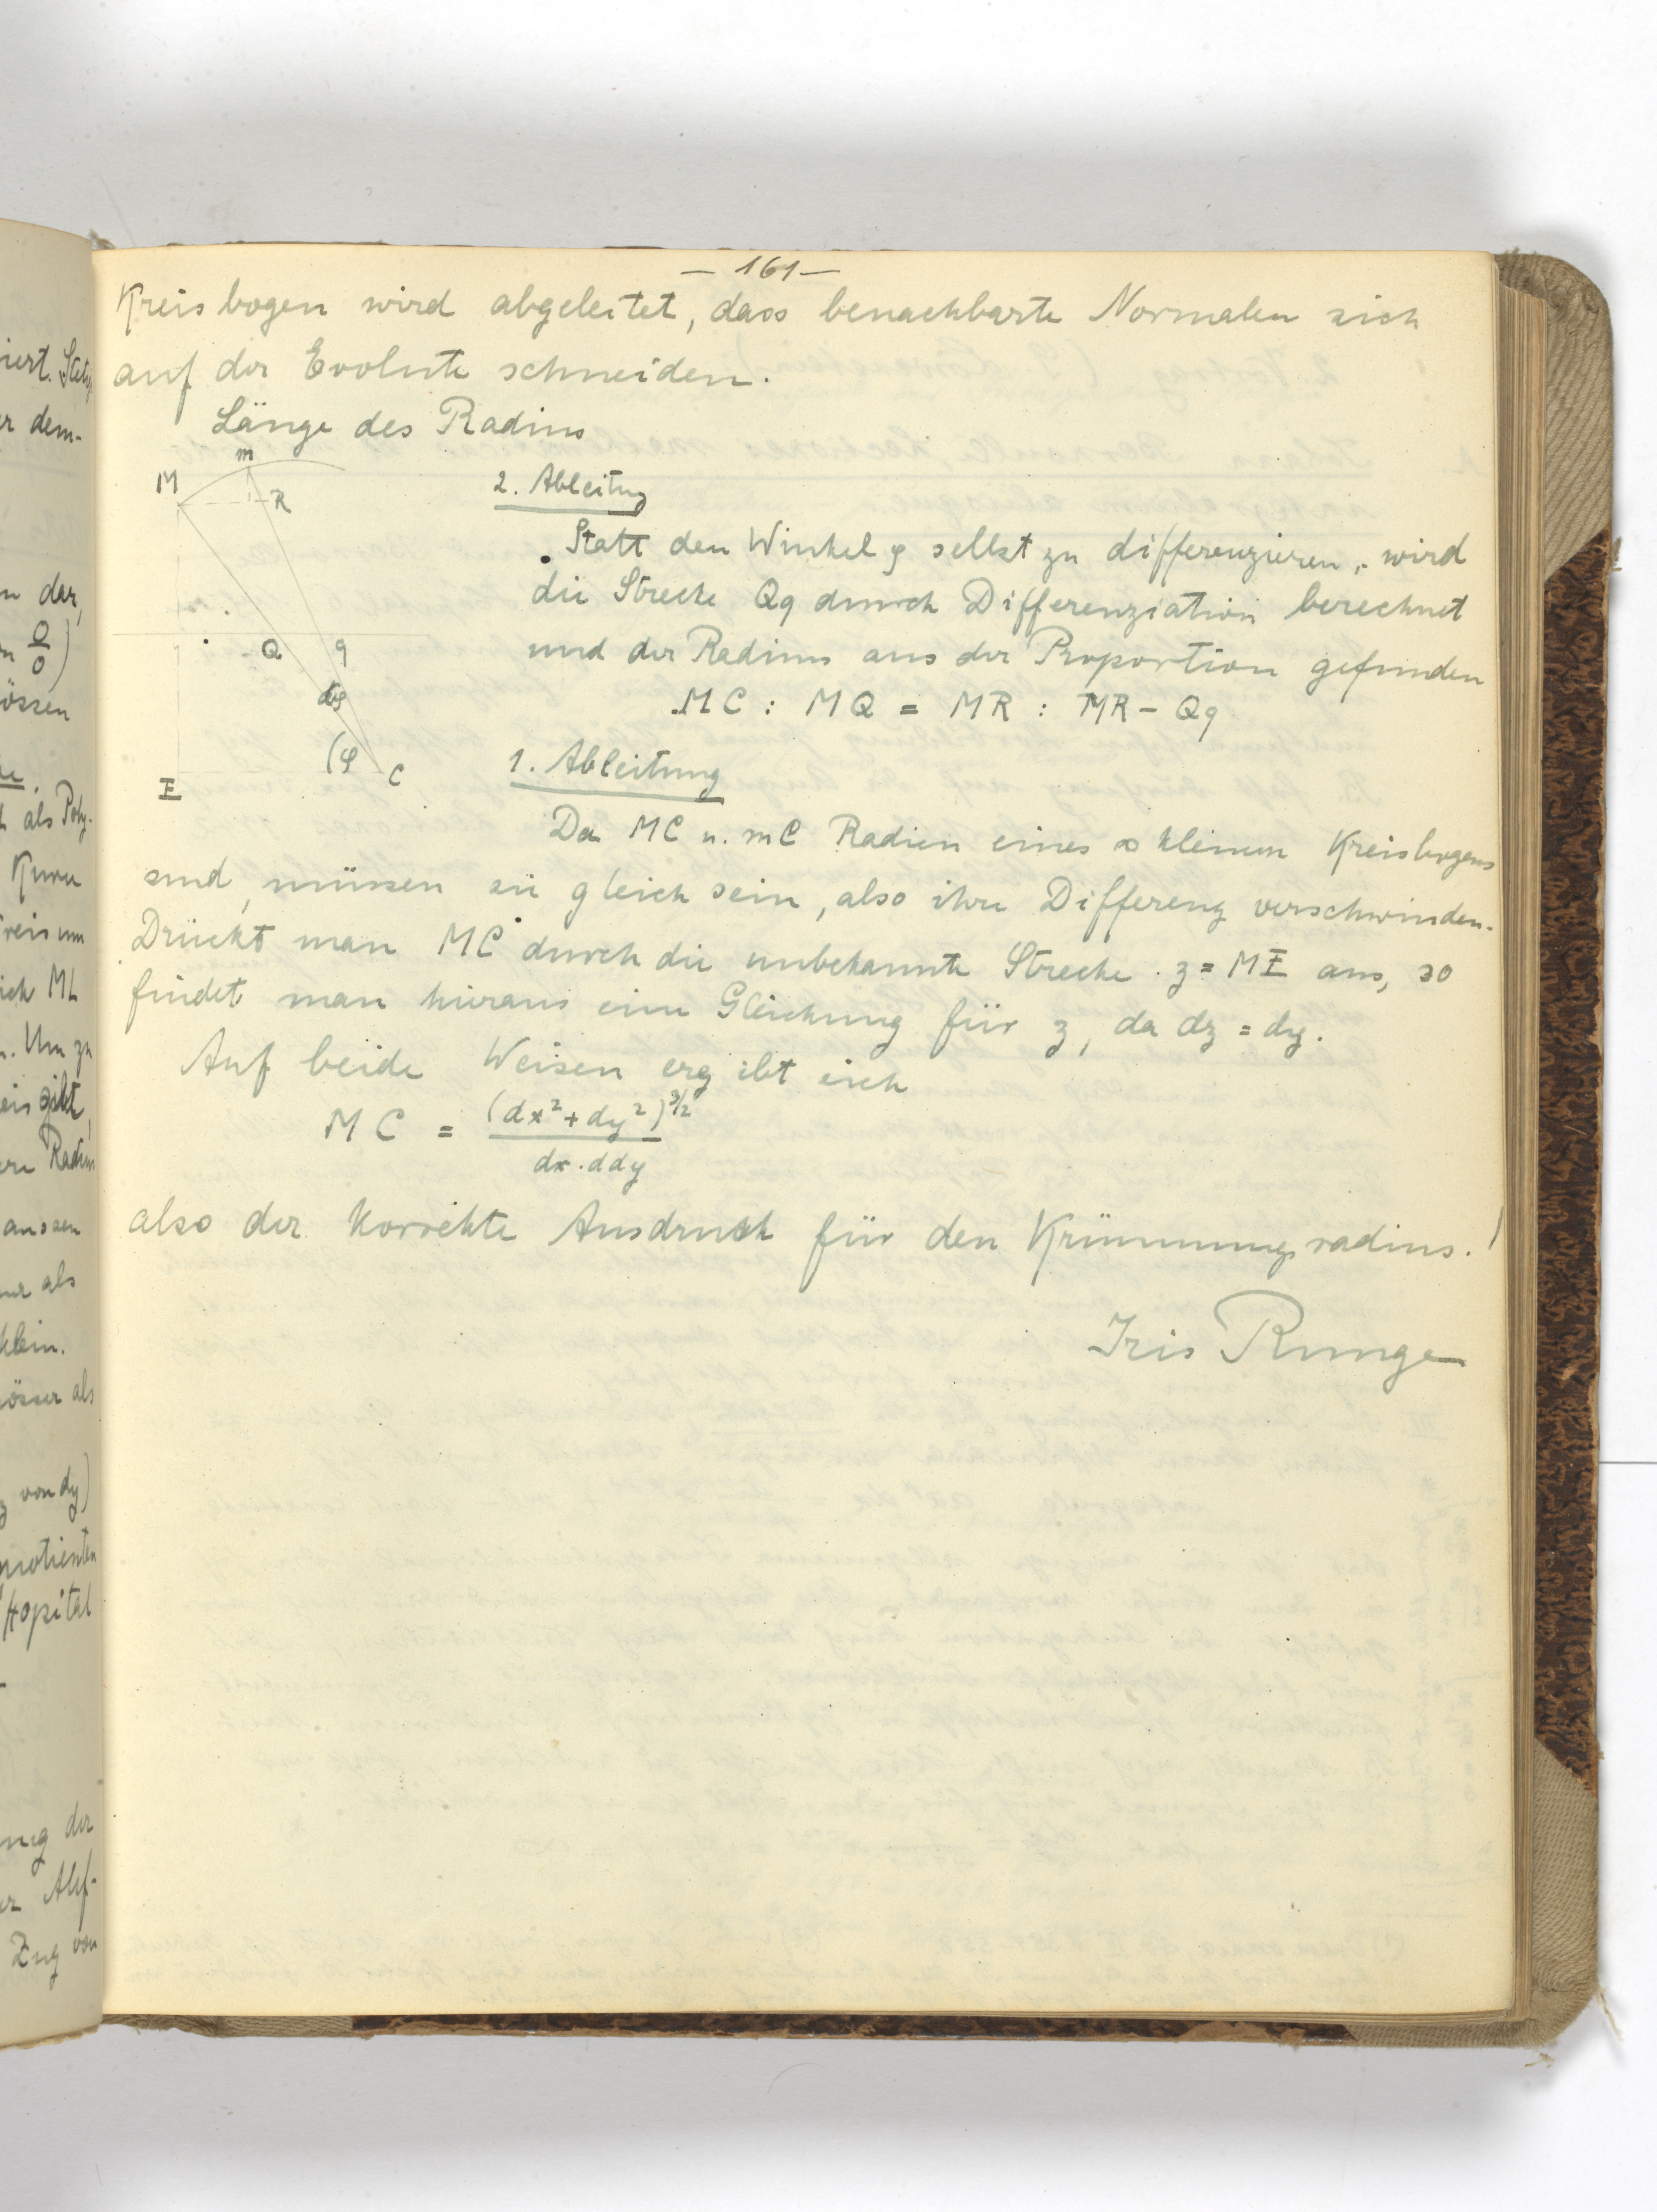 — 161 —
Kreisbogen wird abgeleitet, dass benachbarte Normalen sich
auf der Evolute schneiden.
Länge des Radius
m
M
R
Q q
dφ
(φ C
E
2. Ableitung
Statt den Winkel φ selbst zu differenzieren, wird
die Strecke Qq durch Differenziation berechnet
und der Radius aus der Proportion gefunden
MC : MQ = MR : MR – Qq
1. Ableitung
Da MC u. mC Radien eines ∞ kleinen Kreisbogens
sind, müssen sie gleich sein, also ihre Differenz verschwinden.
Drückt man MC durch die unbekannte Strecke z = ME aus, so
findet man hieraus eine Gleichung für z, da dz = dy.
Auf beide Weisen ergibt sich
MC = (dx²+dy²)^3/2
dx . ddy
also der korrekte Ausdruck für den Krümmungsradius. !
Iris Runge
iert.
er dem-
n dar,
0/0)
össen
als Poly-
Kurve
Kreis um
sich ML
n. Um zu
eis gibt,
Radius
aussen
nur als
klein.
össer als
von dy)
Quotienten
Hopital
ng der
Zug von